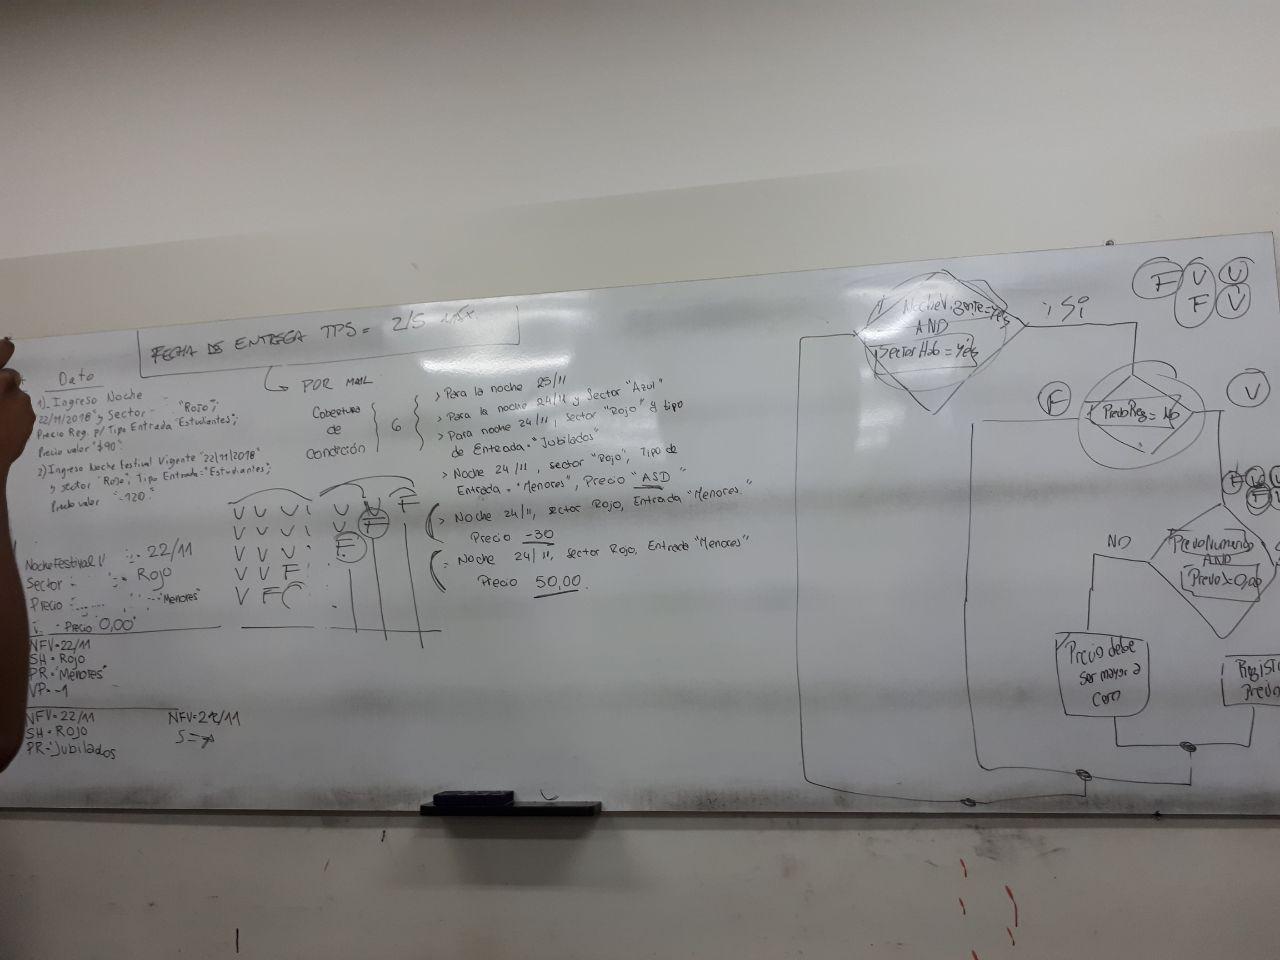 FECHA DE ENTREGA TPS = 2/5
POR MAIL
Dato
1)_ Ingreso Noche
22/11/2018" y Sector "Rojo";
Precio Reg. p/ Tipo Entrada "Estudiantes";
Precio valor "$90"
2) Ingreso Noche Festival Vigente "22/11/2018"
y sector "Rojo"; Tipo Entrada = "Estudiantes";
valor "-120."
Noche Festival V 22/11
Sector Rojo
Precio "Menores"
Precio 0,00
NFV=22/11
SH=Rojo
PR="Menores"
VP=-1
NFV=22/11
SH=Rojo
PR="Jubilados
NFV=22/11
Cobertura
de
condición
6
> Para la noche 25/11
> Para la noche 24/11 y Sector "Azul"
> Para noche 24/11, sector "Rojo" y tipo
de Entrada="Jubilados"
> Noche 24/11, sector "Rojo", Tipo de
Entrada = "Menores", Precio "ASD"
> Noche 24/11, sector Rojo, Entrada "Menores."
Precio -30
- Noche 24/11, sector Rojo, Entrada "Menores"
Precio 50,00
V V V V V F
V V V V F
V V V F
V V F
V F
Noche Vigente=Yes
AND
Sector Hab=Yes
Si
F V V
F V
F
Precio Reg = No
V
NO
Precio Numerico
AND
Precio>0,00
Precio debe
ser mayor a
cero